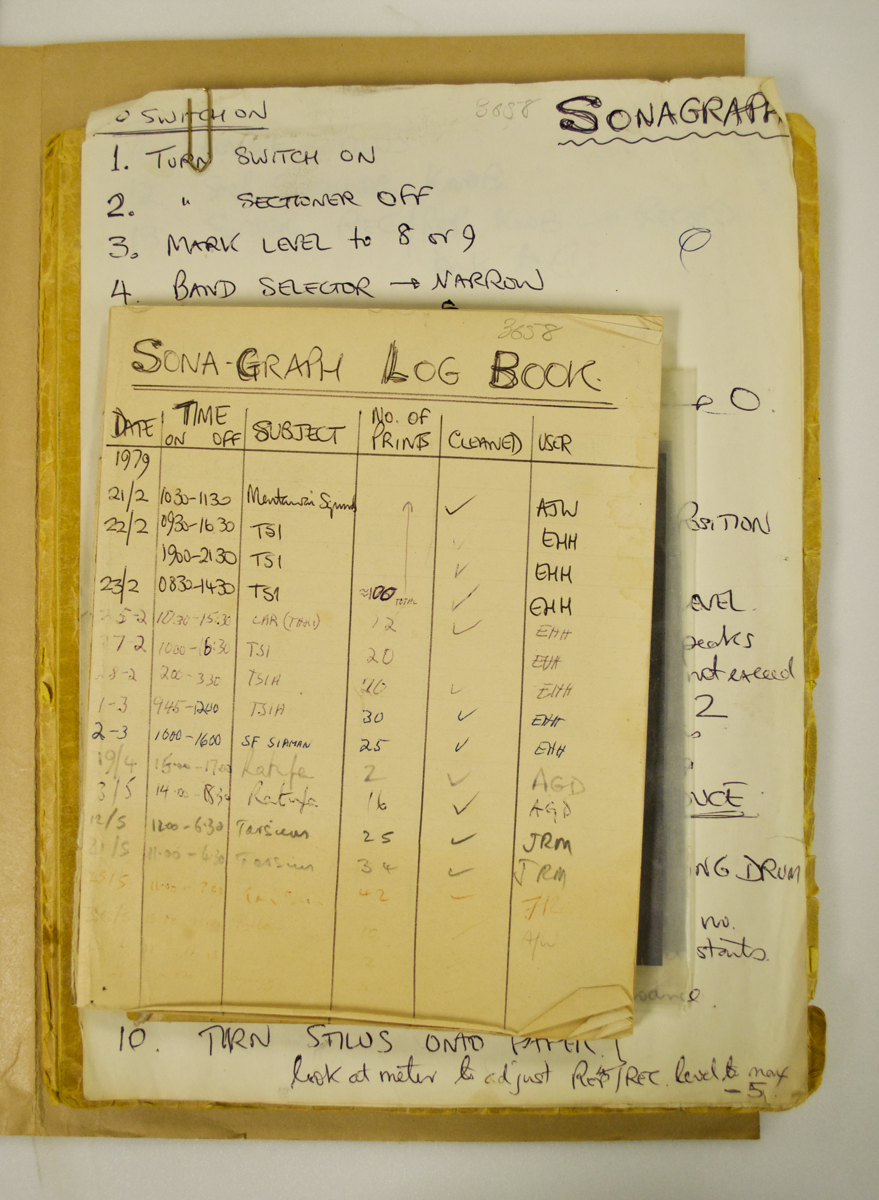 SWITCH ON
3658
SONAGRAPH
1. TURN SWITCH ON
2. " SECTIONER OFF
3. MARK LEVEL to 8 or 9
4. BAND SELECTOR → NARROW
3658
SONA-GRAPH LOG BOOK.
DATE TIME ON OFF SUBJECT NO. OF PRINTS CLEANED USER
1979
21/2 1030-1130 Mentawai ✓ AJW
22/2 0930-1630 TSI ✓ EHH
1900-2130 TSI ✓ EHH
23/2 0830-1430 TSI ≈100 TOTAL ✓ EHH
5-2 1030-15.30 LAR 12 ✓ EHH
7-2 1000-16.30 TSI 20 EHH
8-2 200-330 TSIA ✓ EHH
1-3 945-1200 TSIA 30 ✓ EHH
2-3 1000-1600 SF SIAMAN 25 ✓ EHH
19/4 Ratufa 2 ✓ AGD
3/5 14.00-18.30 Ratufa 16 ✓ AGD
12/5 1200-6.30 Tarsius 25 ✓ JRM
11.00-6.30 Tarsius 34 ✓ JRM
42
AJW
0.
OSITION
EVEL
peaks
not exceed
2
NCE
NG DRUM
no.
starts.
10. TURN STILUS ONTO PAPER
look at meter to adjust REP/REC. level to max
-5